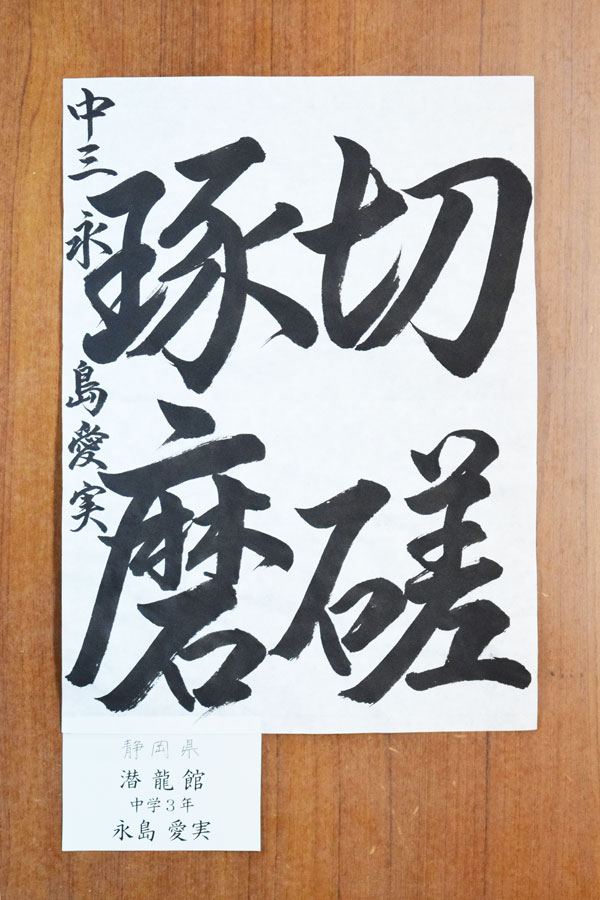 切磋
琢磨
中三 永島愛実
静岡県
潜龍館
中学3年
永島 愛実